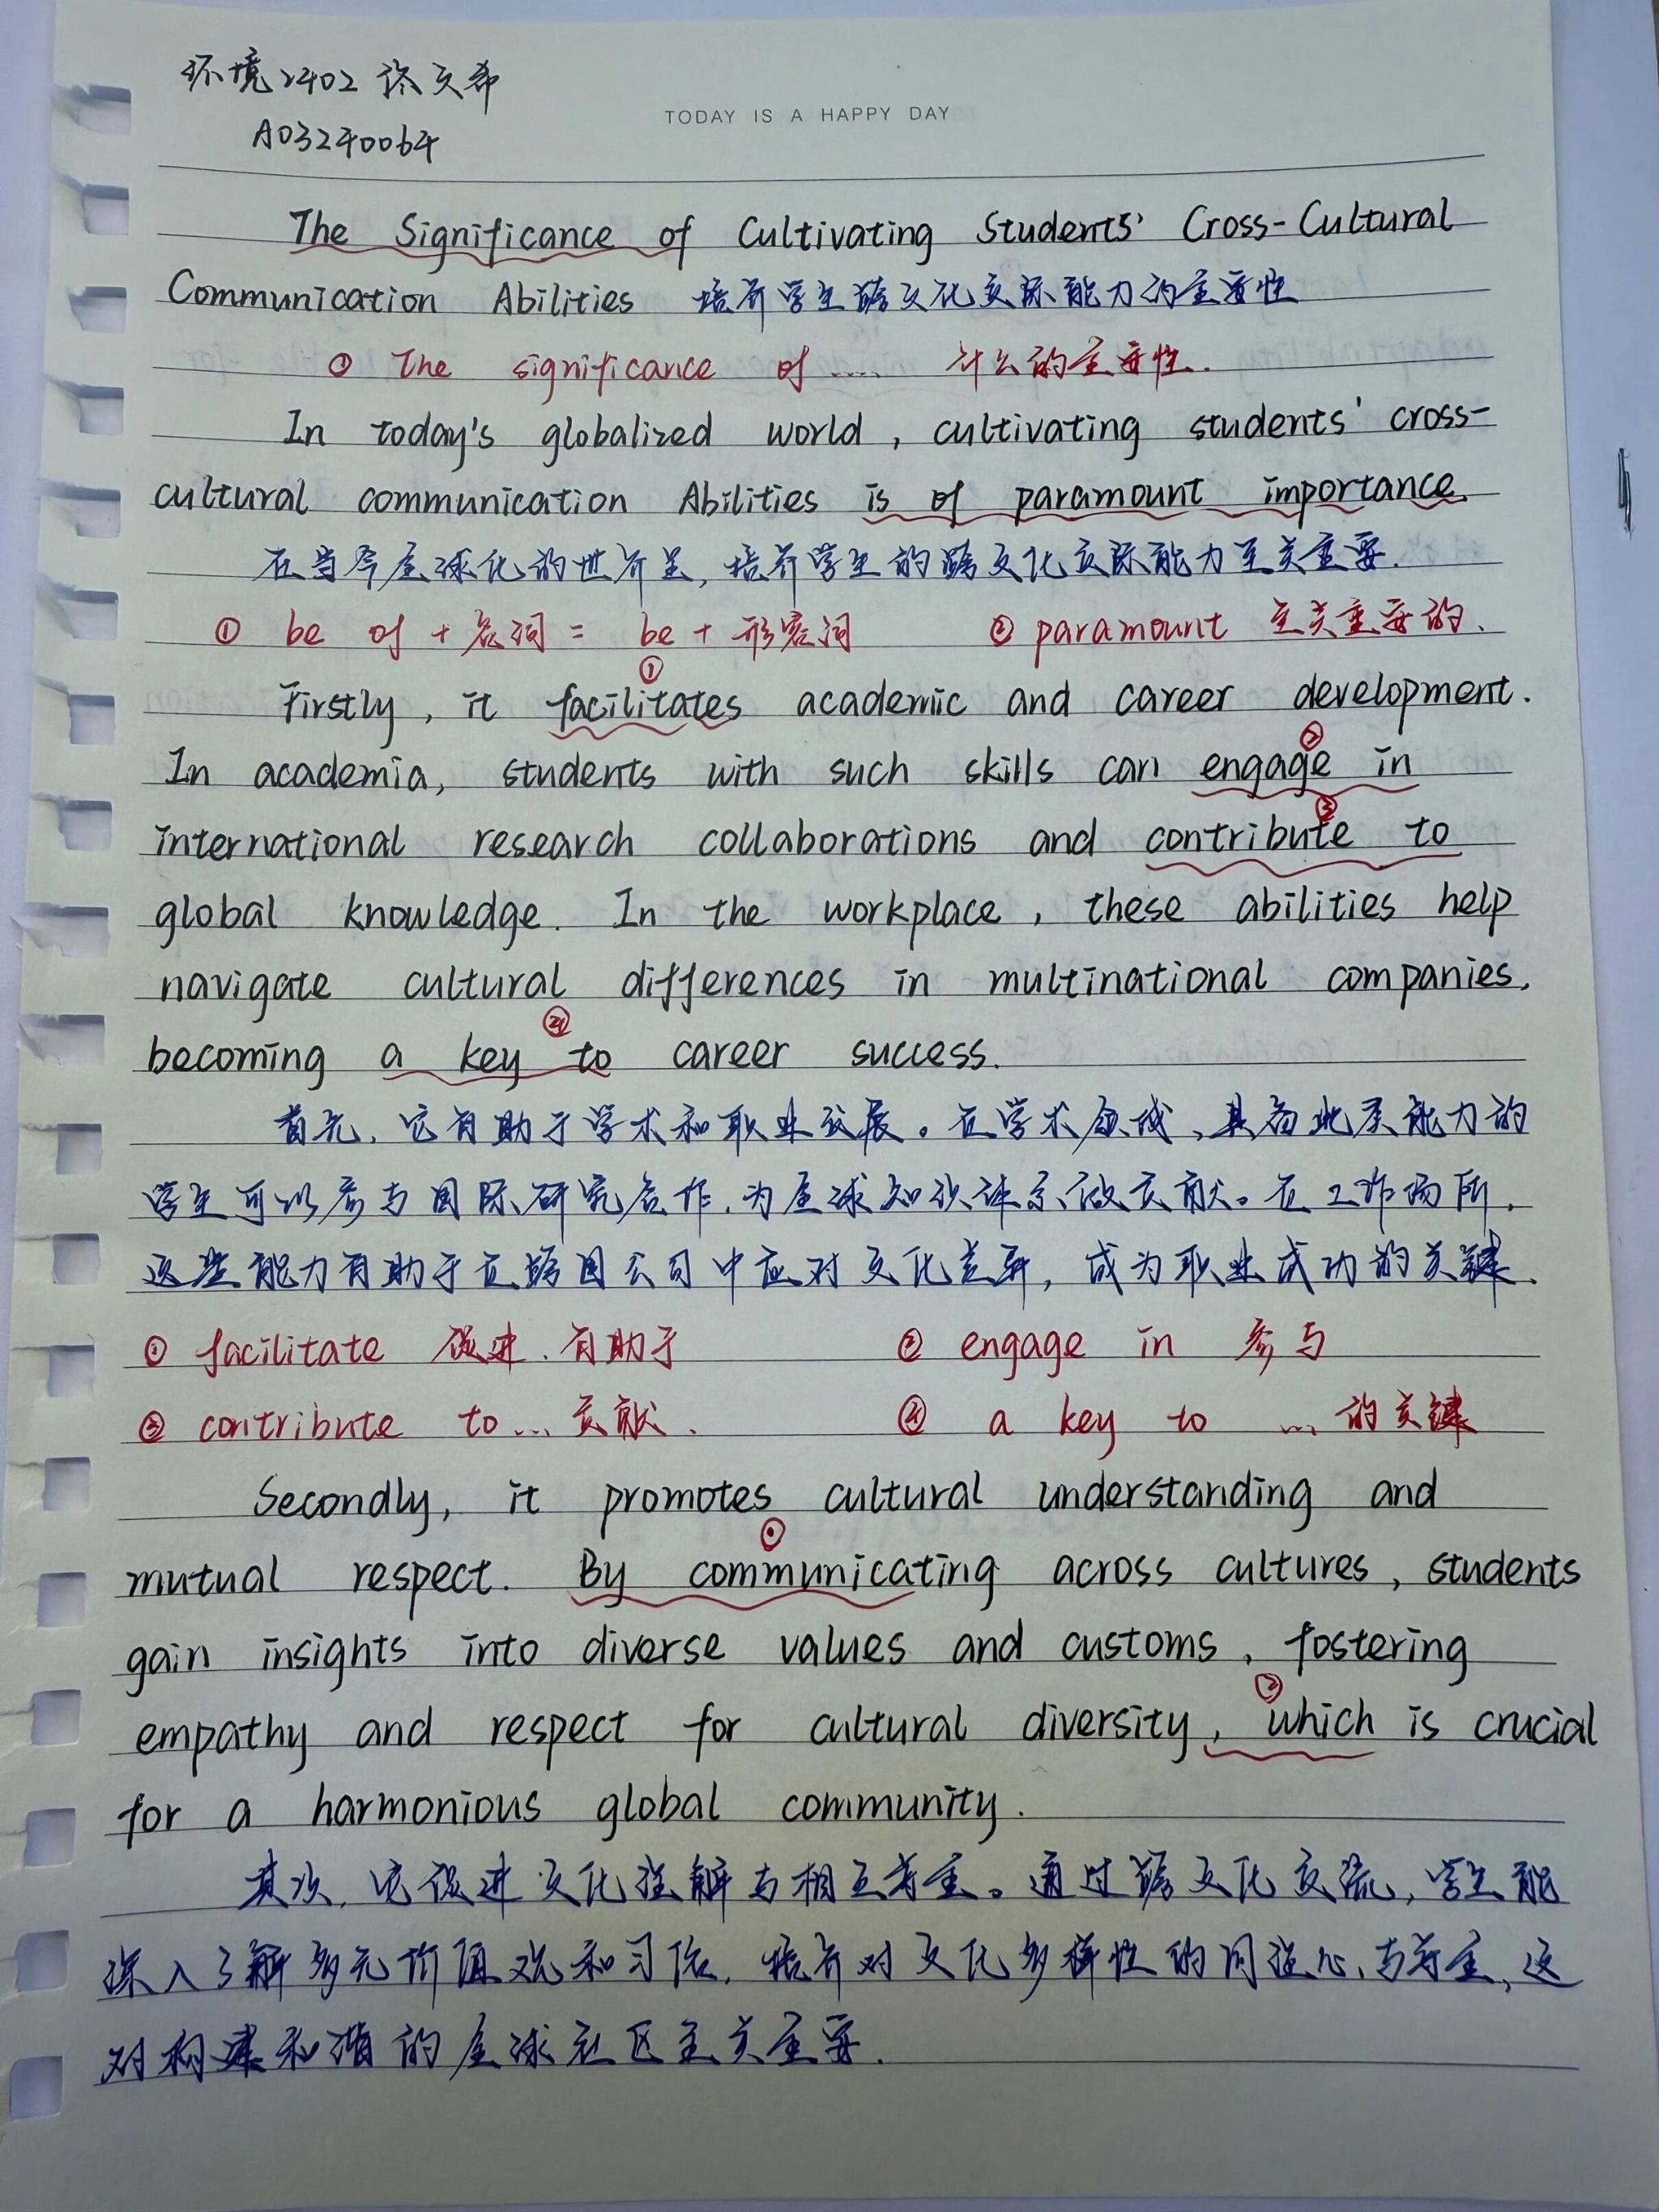 环境2402 涂文希
TODAY IS A HAPPY DAY
A03240064
The Significance of Cultivating Students' Cross-Cultural
Communication Abilities 培养学生跨文化交际能力的重要性
① The significance of ..... 什么的重要性.
In today's globalized world, cultivating students' cross-
cultural communication Abilities is of paramount importance.
在当今全球化的世界里, 培养学生的跨文化交际能力至关重要.
① be of + 名词 = be + 形容词 ② paramount 至关重要的.
①
Firstly, it facilitates academic and career development.
②
In academia, students with such skills can engage in
③
international research collaborations and contribute to
global knowledge. In the workplace, these abilities help
navigate cultural differences in multinational companies,
④
becoming a key to career success.
首先, 它有助于学术和职业发展。在学术领域, 具备此类能力的
学生可以参与国际研究合作, 为全球知识体系做贡献。在工作场所,
这些能力有助于在跨国公司中应对文化差异, 成为职业成功的关键.
① facilitate 促进. 有助于 ② engage in 参与
③ contribute to ... 贡献. ④ a key to .... 的关键
Secondly, it promotes cultural understanding and
①
mutual respect. By communicating across cultures, students
gain insights into diverse values and customs, fostering
②
empathy and respect for cultural diversity, which is crucial
for a harmonious global community.
其次, 它促进文化理解与相互尊重。通过跨文化交流, 学生能
深入了解多元价值观和习俗, 培养对文化多样性的同理心与尊重, 这
对构建和谐的全球社区至关重要.